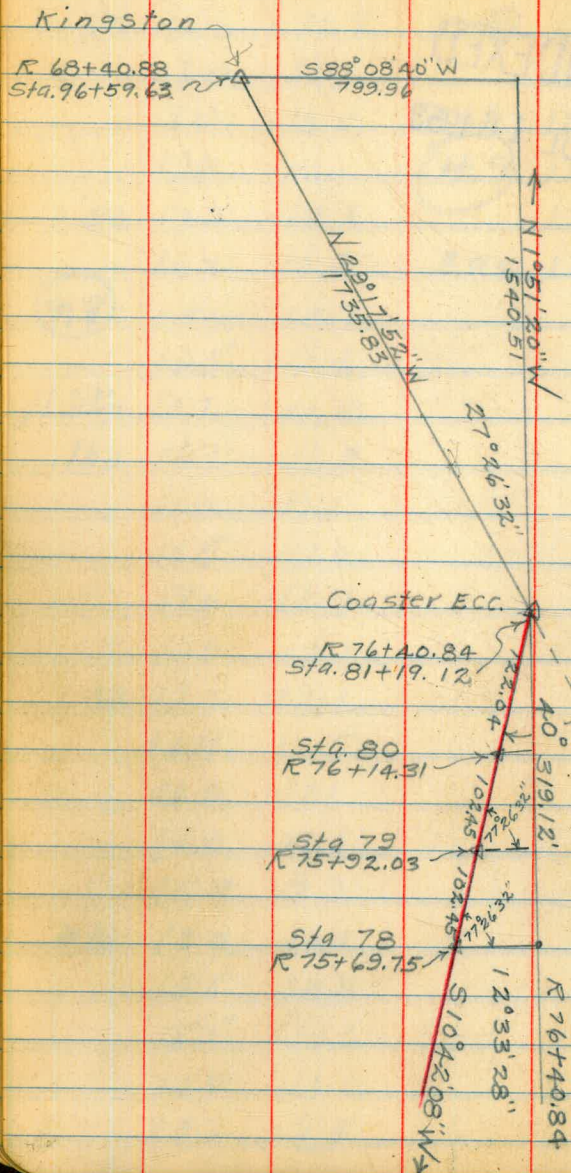 Kingston
R 68+40.88
Sta. 96+59.63
S 88° 08' 40" W
799.96
← N 1° 51' 20" W
1540.51
N 29° 17' 52" W
1735.83
27° 26' 32"
Coaster Ecc.
R 76+40.84
Sta. 81+19.12
122.04
40°
319.12'
Sta. 80
R 76+14.31
102.45
77° 26' 32"
Sta 79
R 75+92.03
102.45
77° 26' 32"
Sta 78
R 75+69.75
12° 33' 28"
S 10° 42' 08" W →
R 76+40.84